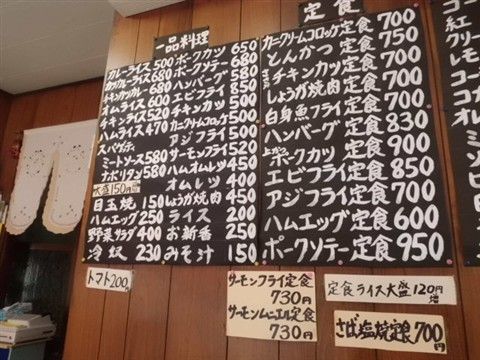 一品料理
カレーライス 500
カツカレーライス 680
チキンカツカレー 680
オムライス 600
チキンライス 520
ハムライス 470
スパゲティ
ミートソース 580
ナポリタン 580
大盛150円増
目玉焼 150
ハムエッグ 250
野菜サラダ 400
冷奴 230
ポークカツ 650
ポークソテー 680
ハンバーグ 580
エビフライ 850
チキンカツ 500
カニクリームコロッケ 500
アジフライ 500
サーモンフライ 520
ハムオムレツ 450
オムレツ 400
しょうが焼肉 450
ライス 200
お新香 250
みそ汁 150
定食
カニクリームコロッケ定食 700
とんかつ定食 750
チキンカツ定食 700
しょうが焼肉定食 700
白身魚フライ定食 700
ハンバーグ定食 830
上ポークカツ定食 900
エビフライ定食 850
アジフライ定食 700
ハムエッグ定食 600
ポークソテー定食 950
トマト200
サーモンフライ定食
730円
サーモンムニエル定食
730円
定食ライス大盛120円増
さば塩焼定食700円